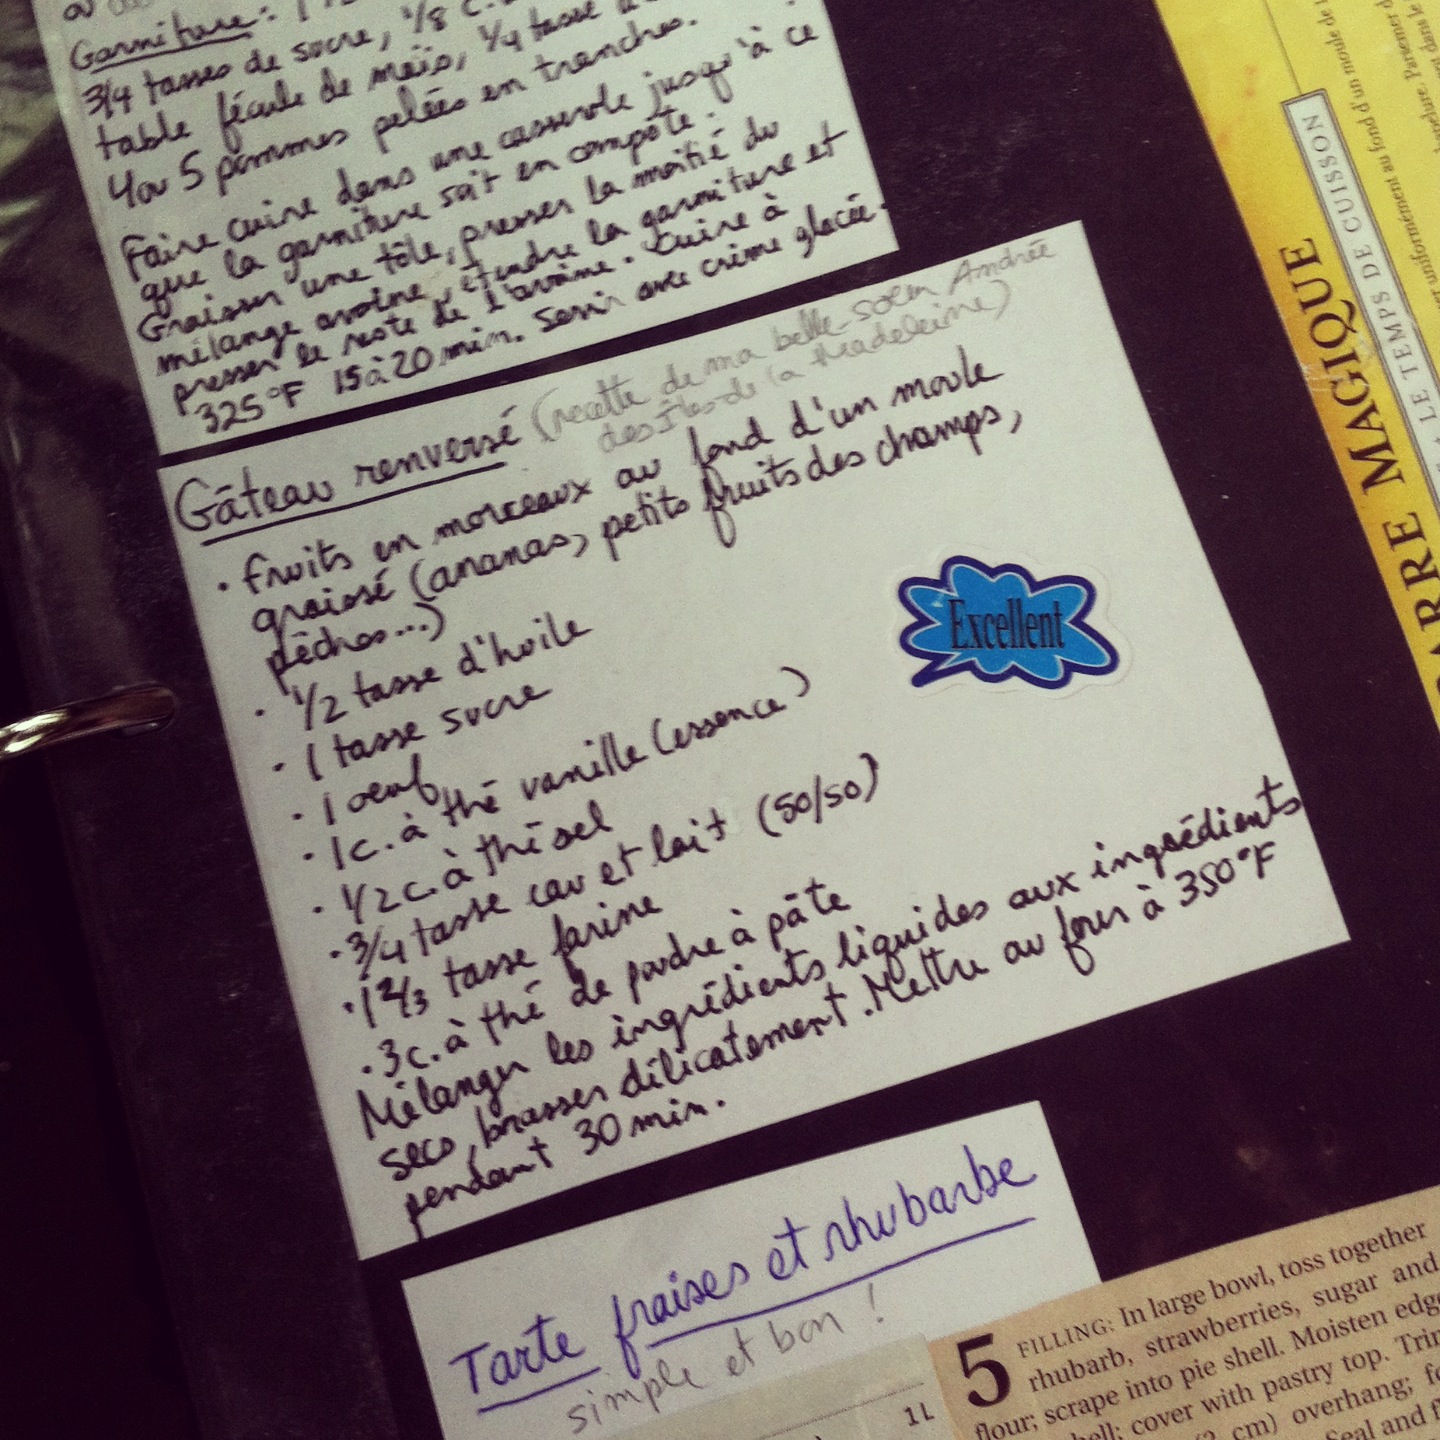 Garniture:
3/4 tasses de sucre, 1/8 c.
table fécule de maïs, 1/4 tasse
4 ou 5 pommes pelées en tranches.
Faire cuire dans une casserole jusqu'à ce
que la garniture soit en compote.
Graisser une tôle, presser la moitié du
mélange avoine, étendre la garniture et
presser le reste de l'avoine. Cuire à
325°F 15 à 20 min. Servir avec crème glacée.
Gâteau renversé (recette de ma belle-soeur Andrée
des Îles-de la Madeleine)
• Fruits en morceaux au fond d'un moule
graissé (ananas, petits fruits des champs,
pêches...)
• 1/2 tasse d'huile
• 1 tasse sucre
• 1 oeuf
• 1 c. à thé vanille (essence)
• 1/2 c. à thé sel
• 3/4 tasse eau et lait (50/50)
• 1 2/3 tasse farine
• 3 c. à thé de poudre à pâte
Mélanger les ingrédients liquides aux ingrédients
secs, brasser délicatement. Mettre au four à 350°F
pendant 30 min.
Excellent
Tarte fraises et rhubarbe
simple et bon !
1 L
5 FILLING: In large bowl, toss together
rhubarb, strawberries, sugar and
flour; scrape into pie shell. Moisten edge
cover with pastry top.
cm) overhang;
Seal and
MAGIQUE
LE TEMPS DE CUISSON
uniformément au fond d'un moule de